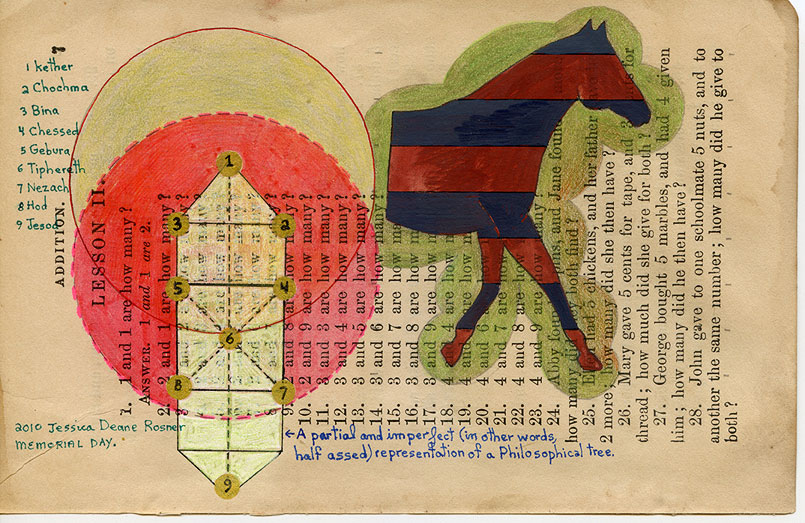 1 kether
2 Chochma
3 Bina
4 Chessed
5 Gebura
6 Tiphereth
7 Nezach
8 Hod
9 Jesod
1
3 2
5 4
6
8 7
9
2010 Jessica Deane Rosner
MEMORIAL DAY.
←A partial and imperfect (in other words,
half assed) representation of a Philosophical tree.
7
ADDITION.
LESSON II.
1. 1 and 1 are how many?
ANSWER. 1 and 1 are 2.
2. 2 and 1 are how many?
9. 2 and 8 are how many?
10. 2 and 9 are how many?
11. 3 and 3 are how many?
12. 3 and 4 are how many?
13. 3 and 5 are how many?
14. 3 and 6 are how many?
15. 3 and 7 are how many?
16. 3 and 8 are how many?
17. 3 and 9 are how many?
18. 4 and 4 are how
19. 4 and 5 are how
20. 4 and 6 are
21. 4 and 7
22. 4 and 8 are
23. 4 and 9 are how many?
24. Abby found and Jane found
how many did each find?
25. had 5 chickens, and her father
2 more; how many did she then have?
26. Mary gave 5 cents for tape, and 3 for
thread; how much did she give for both?
27. George bought 5 marbles, and had 4 given
him; how many did he then have?
28. John gave to one schoolmate 5 nuts, and to
another the same number; how many did he give to
both?